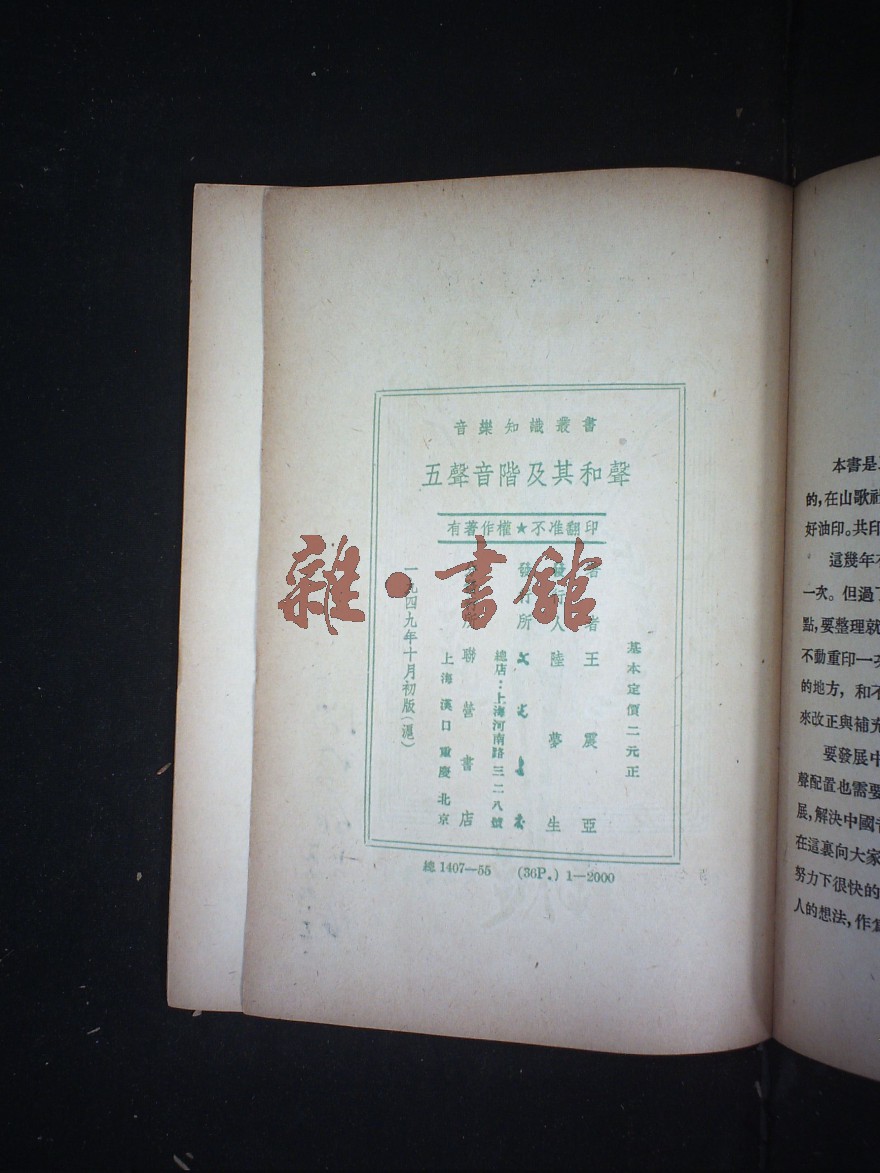 音樂知識叢書
五聲音階及其和聲
有著作權★不准翻印
基本定價二元正
著者 王震亞
發行人 陸夢生
發行所
總店：上海河南路三二八號
聯營書店
上海 漢口 重慶 北京
一九四九年十月初版（滬）
總1407—55 (36P.) 1—2000
雜·書館
本書是
的，在山歌社
好油印。共印
這幾年
一次。但過了
點，要整理就
不動重印一
的地方，和不
來改正與補充
要發展中
聲配置也需要
展，解決中國音
在這裏向大家
努力下很快的
人的想法，作爲